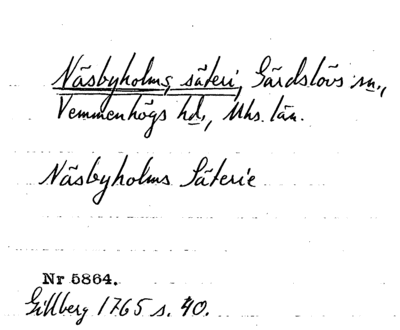 Näsbyholms säteri, Gärdslövs sn.,
Vemmenhögs hd., Mhs. län.
Näsbyholms Säterie
Nr 5864.
Gillberg 1765 s. 40.